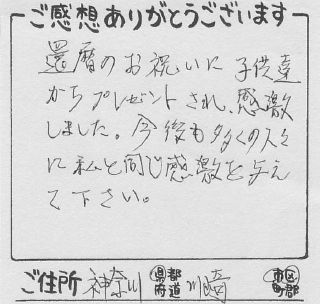 ご感想ありがとうございます
還暦のお祝いに子供達
からプレゼントされ、感激
しました。今後も多くの人々
に私と同じ感激を与え
て下さい。
ご住所 神奈川 都道府県 川崎 市区町郡